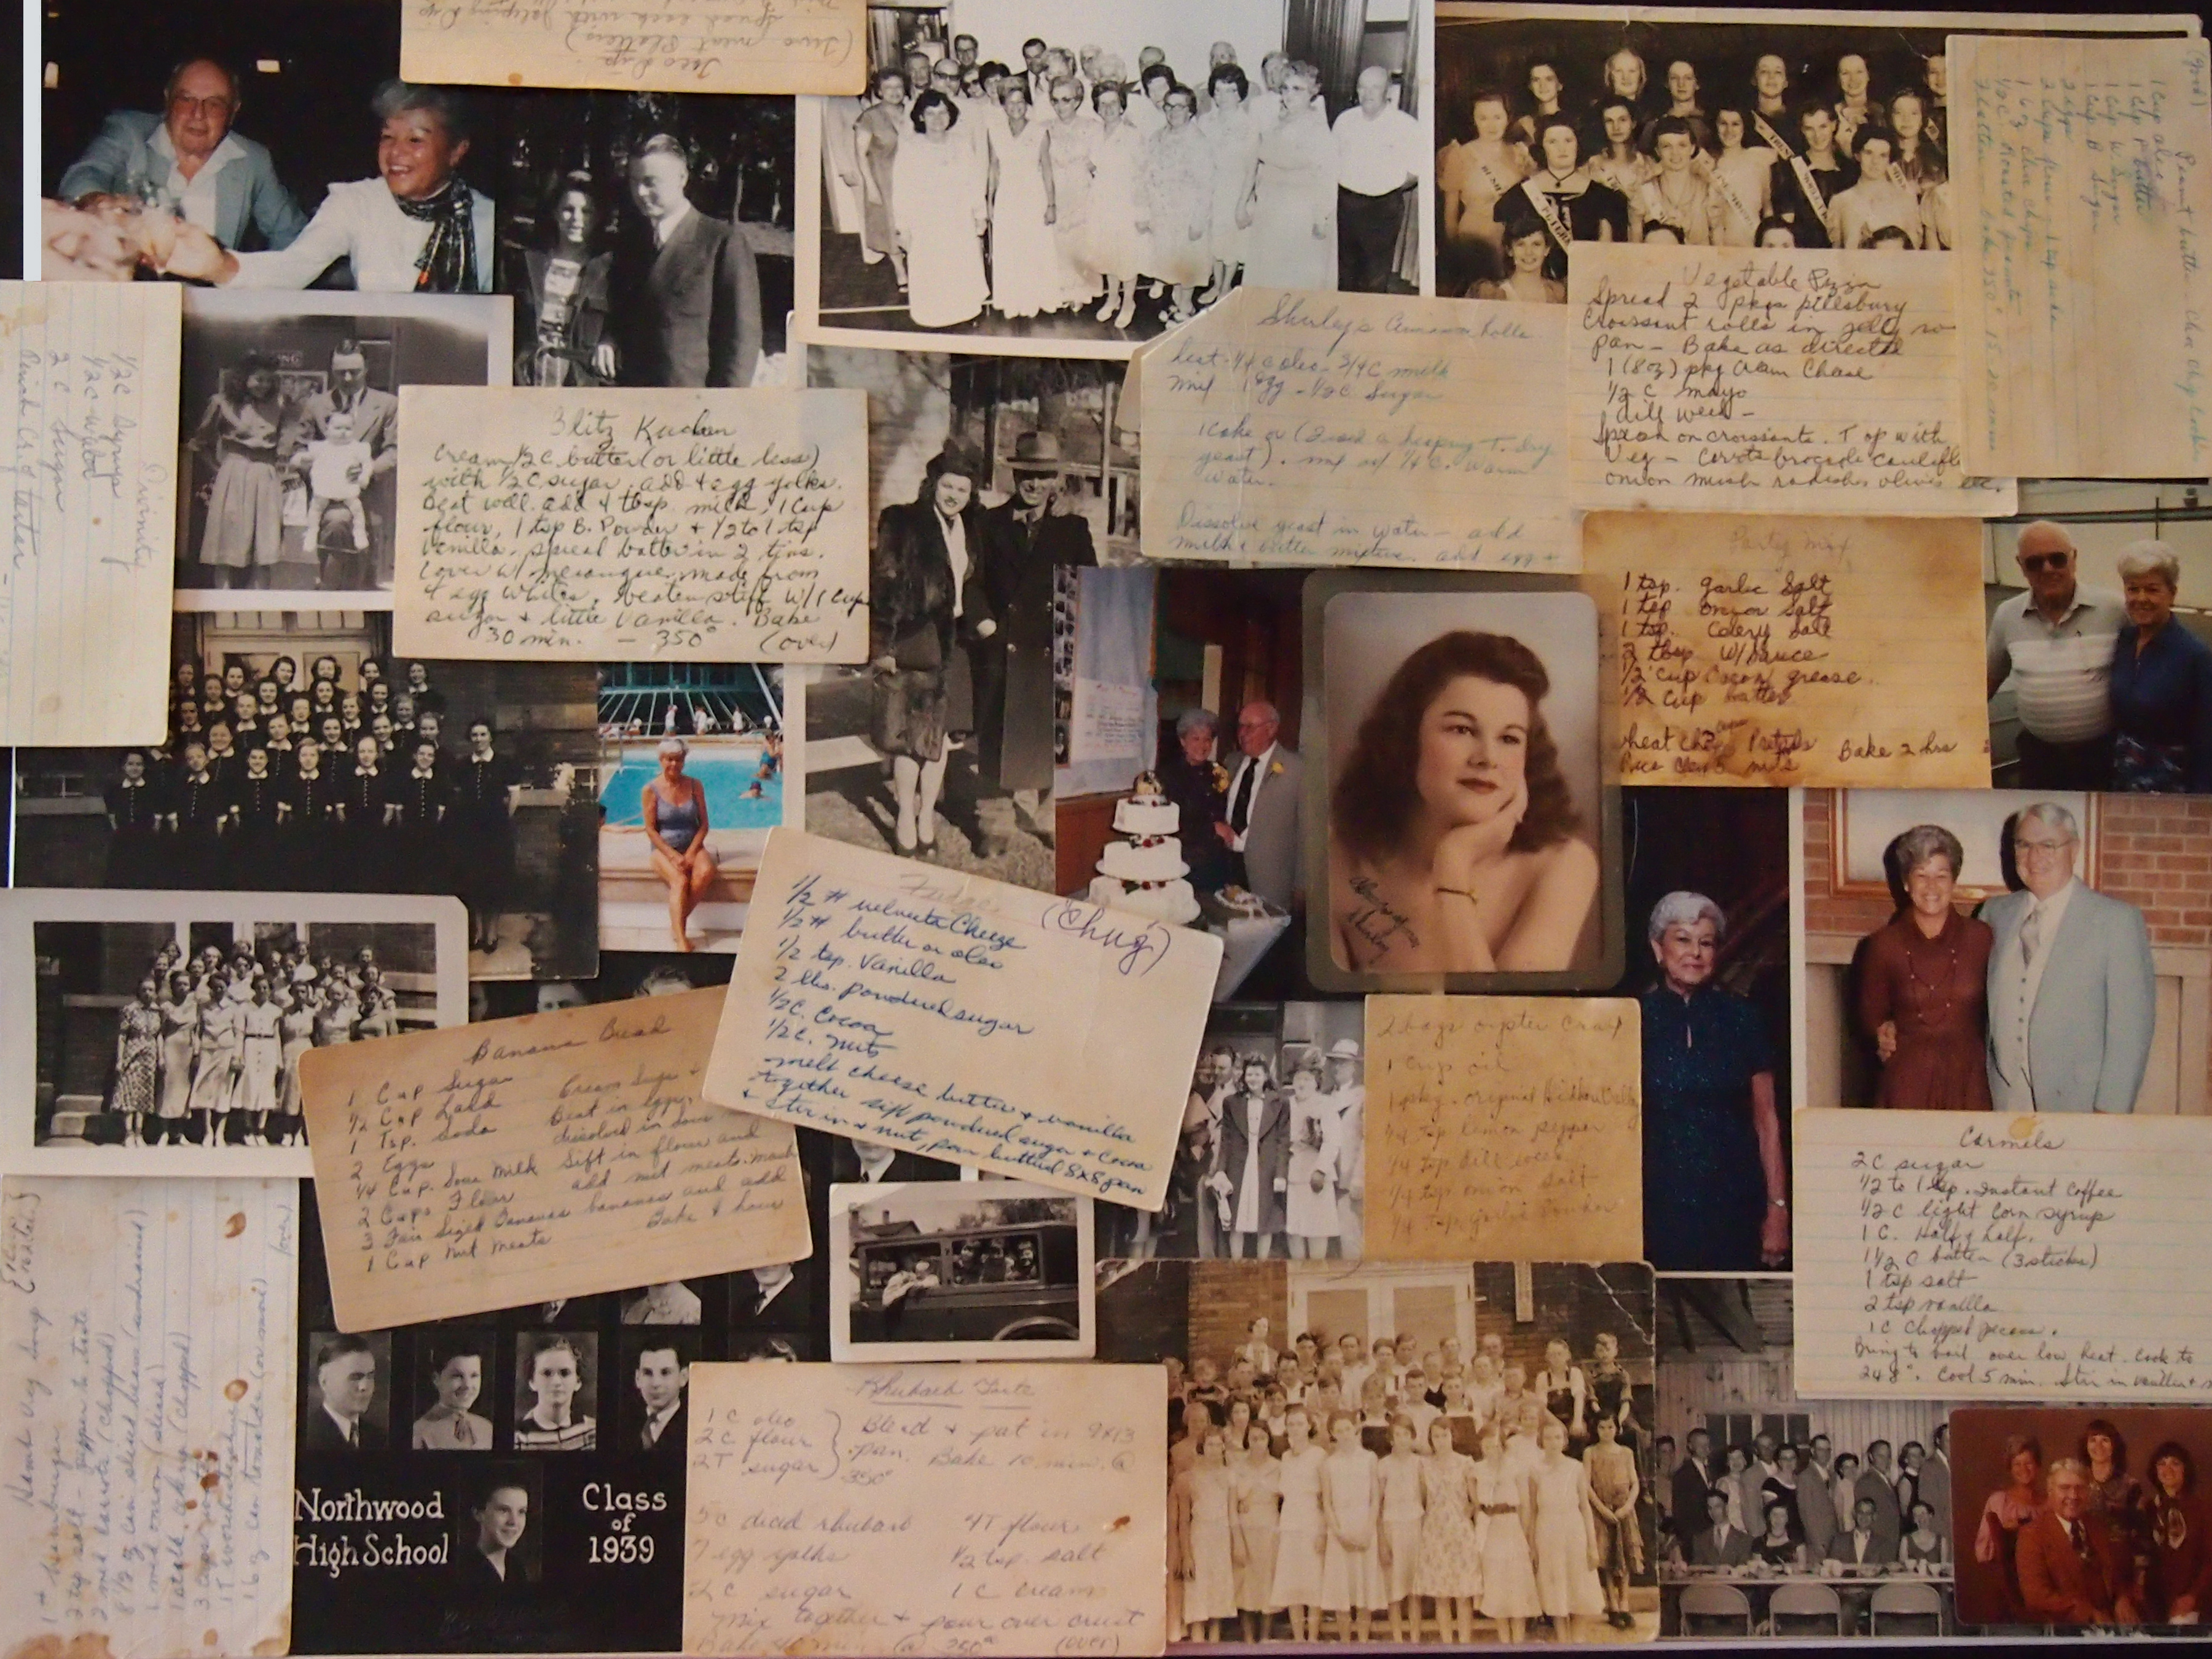 Taco Dip
(Two meat Platters)
Spread each with Jalapeno Dip
Peanut butter Cho Chip Cookie
(good)
1 Cup oleo
1 Cup P Butter
1 Cup W. Sugar
1 Cup B Sugar
2 eggs
2 cups flour - 1 tsp soda
1 6oz cho chips
1/2 C Roasted peanuts
350°
Vegetable Pizza
Spread 2 pkgs pillsbury
Croissant rolls in jelly ro
pan - Bake as directed
1 (8oz) pkg Cream Chese
1/2 C mayo
dill weed -
Spread on croissants. Top with
Veg - Carrots brocoole Caulifl
onion mush radishes olives etc.
Shirley's Cinnamon Rolls
heat - 1/4 c oleo - 3/4 C milk
mix 1 egg - 1/2 C Sugar
1 cake or (I used a heaping T. dry
yeast). mix w/ 1/4 C. warm
water.
Dissolve yeast in water - add
milk & butter mixture. add egg +
Divinity
1/2 C Syrup
1/2 C water
2 C sugar
Blitz Kuchen
Cream 1/2 C butter (or little less)
with 1/2 C sugar, add 4 egg yolks.
Beat well. add 4 tbsp. milk, 1 Cup
flour, 1 tsp B. Powder + 1/2 to 1 tsp
Vanilla. spread batter in 2 tins.
Cover w/ merangue made from
4 egg whites, beaten stiff w/ 1 Cup
sugar + little Vanilla. Bake
30 min. - 350° (over)
Party Mix
1 tsp. garlic Salt
1 tsp onion Salt
1 tsp. Celery Salt
2 tbsp W/sauce
1/2 cup Bacon grease
1/2 Cup butter
Wheat Chex Pretzels
Rice Chex nuts
Bake 2 hrs
Always
Shirley
Fudge
(Chug)
1/2 # velveeta Cheeze
1/2 # butter or oleo
1/2 tsp. Vanilla
2 lbs. powdered sugar
1/2 C. Cocoa
1/2 C. nuts
melt cheese butter + vanilla
together sift powdered sugar + Cocoa
+ stir in + nut, pour buttered 8x8 pan
Banana Bread
1 Cup Sugar
1/2 Cup Lard
1 Tsp. soda
2 Eggs
1/4 Cup. Sour Milk
2 Cups Flour
3 Fair Sized Bananas
1 Cup Nut Meats
Cream Sugar +
Beat in eggs,
dissolved in sour
Sift in flour and
add nut meats. mash
bananas and add
Bake 1 hour
2 bags oyster Crax
1 cup oil
1 pkg. original Hidden Valley
1/4 tsp lemon pepper
1/4 tsp dill weed
1/4 tsp onion salt
1/4 tsp garlic powder
Carmels
2 C sugar
1/2 to 1 tsp. instant coffee
1/2 C light Corn syrup
1 C. Half & half.
1 1/2 C butter (3 sticks)
1 tsp salt
2 tsp vanilla
1 C Chopped pecans.
Bring to boil over low heat. Cook to
248°. Cool 5 min. Stir in vanilla +
Hamb Veg Soup
1 # Hamburger
2 tsp salt - pepper to taste
2 med carrots (chopped)
1 med onion (sliced)
1 stalk celery (chopped)
1 T worchestershire
1 16 oz can tomatoes
(over)
Northwood
High School
Class
of
1939
Rhubarb Torte
1 C oleo
2 C flour
2 T sugar
Blend + pat in 9x13
pan. Bake 10 min. @
350°
5 C diced rhubarb
7 egg yolks
2 C sugar
4T flour
1/2 tsp. salt
1 C cream
Mix together + pour over crust
(over)